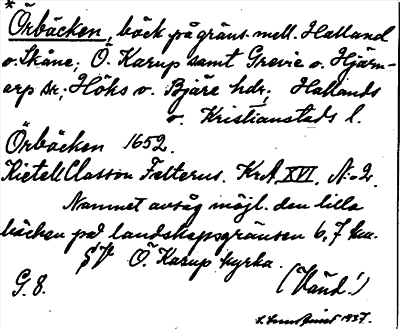 * Örbäcken, bäck på gräns. mell. Halland
o. Skåne; Ö. Karup samt Grevie o. Hjärn-
arp sr.; Höks o. Bjäre hdr; Hallands
o. Kristianstads l.
Örbäcken 1652.
Kietell Classon Felterus. KrA, XVI, N:o 2.
Namnet avsåg möjl. den lilla
bäcken på landskapsgränsen 6,7 km.
Ö. Karup kyrka.
G. 8. (Vänd!)
1937.